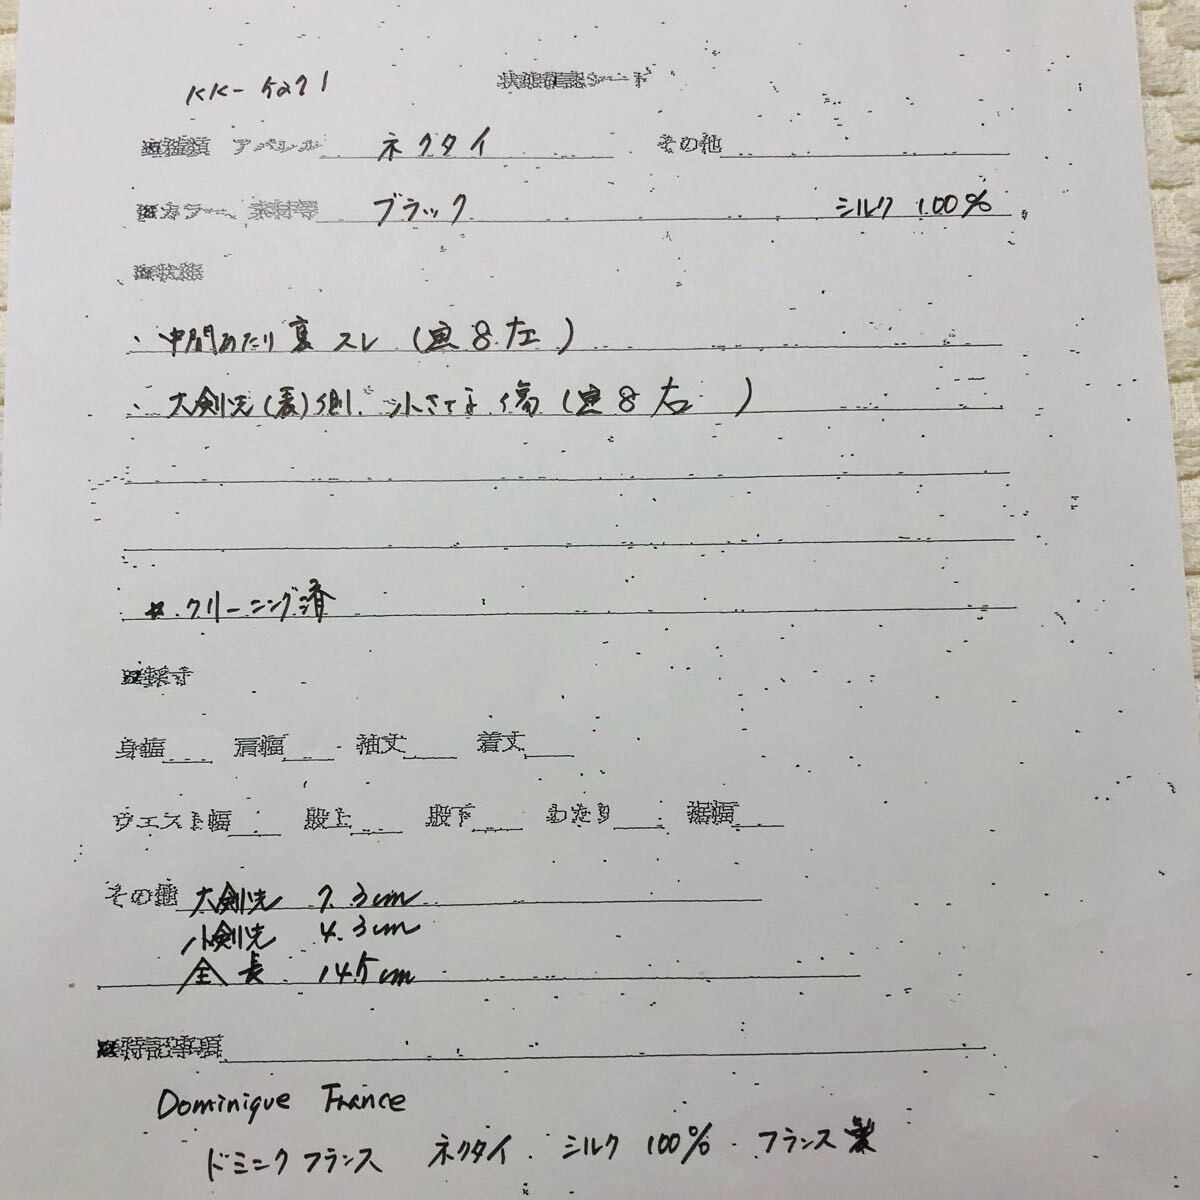 KK-5271 状態確認シート
■種類 アパレル ネクタイ その他
■カラー、素材等 ブラック シルク 100%
■状態
・中間あたり裏スレ(画8左)
・大剣先(裏)側、小さな傷(画8右)
クリーニング済
■採寸
身幅 肩幅 袖丈 着丈
ウエスト幅 股上 股下 わたり 裾幅
その他 大剣先 7.3cm
小剣先 4.3cm
全長 145cm
■特記事項
Dominique France
ドミニクフランス ネクタイ. シルク 100%. フランス製